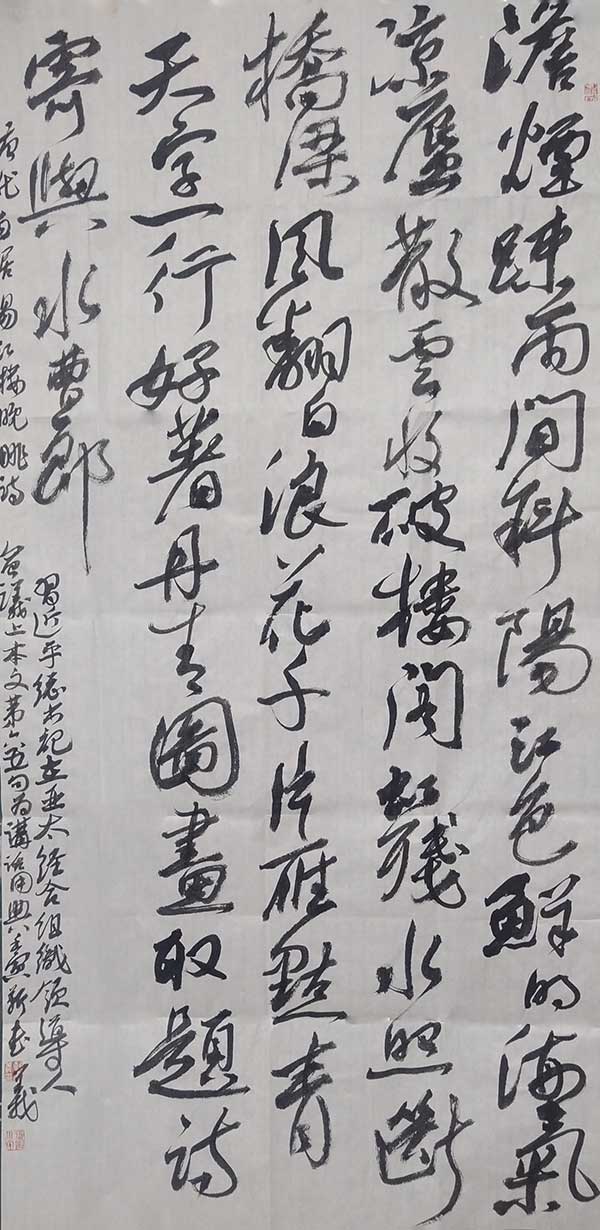 澹煙疎雨間斜陽江色鮮明海氣
涼蜃散雲收破樓閣虹殘水照斷
橋梁風翻白浪花千片雁點青
天字一行好著丹青圖畫取題詩
寄與水曹郎
唐代白居易江樓晚眺詩
習近平總书記在亚太經合組織領導人
會議上本文第五句为講話用典壬寅新春